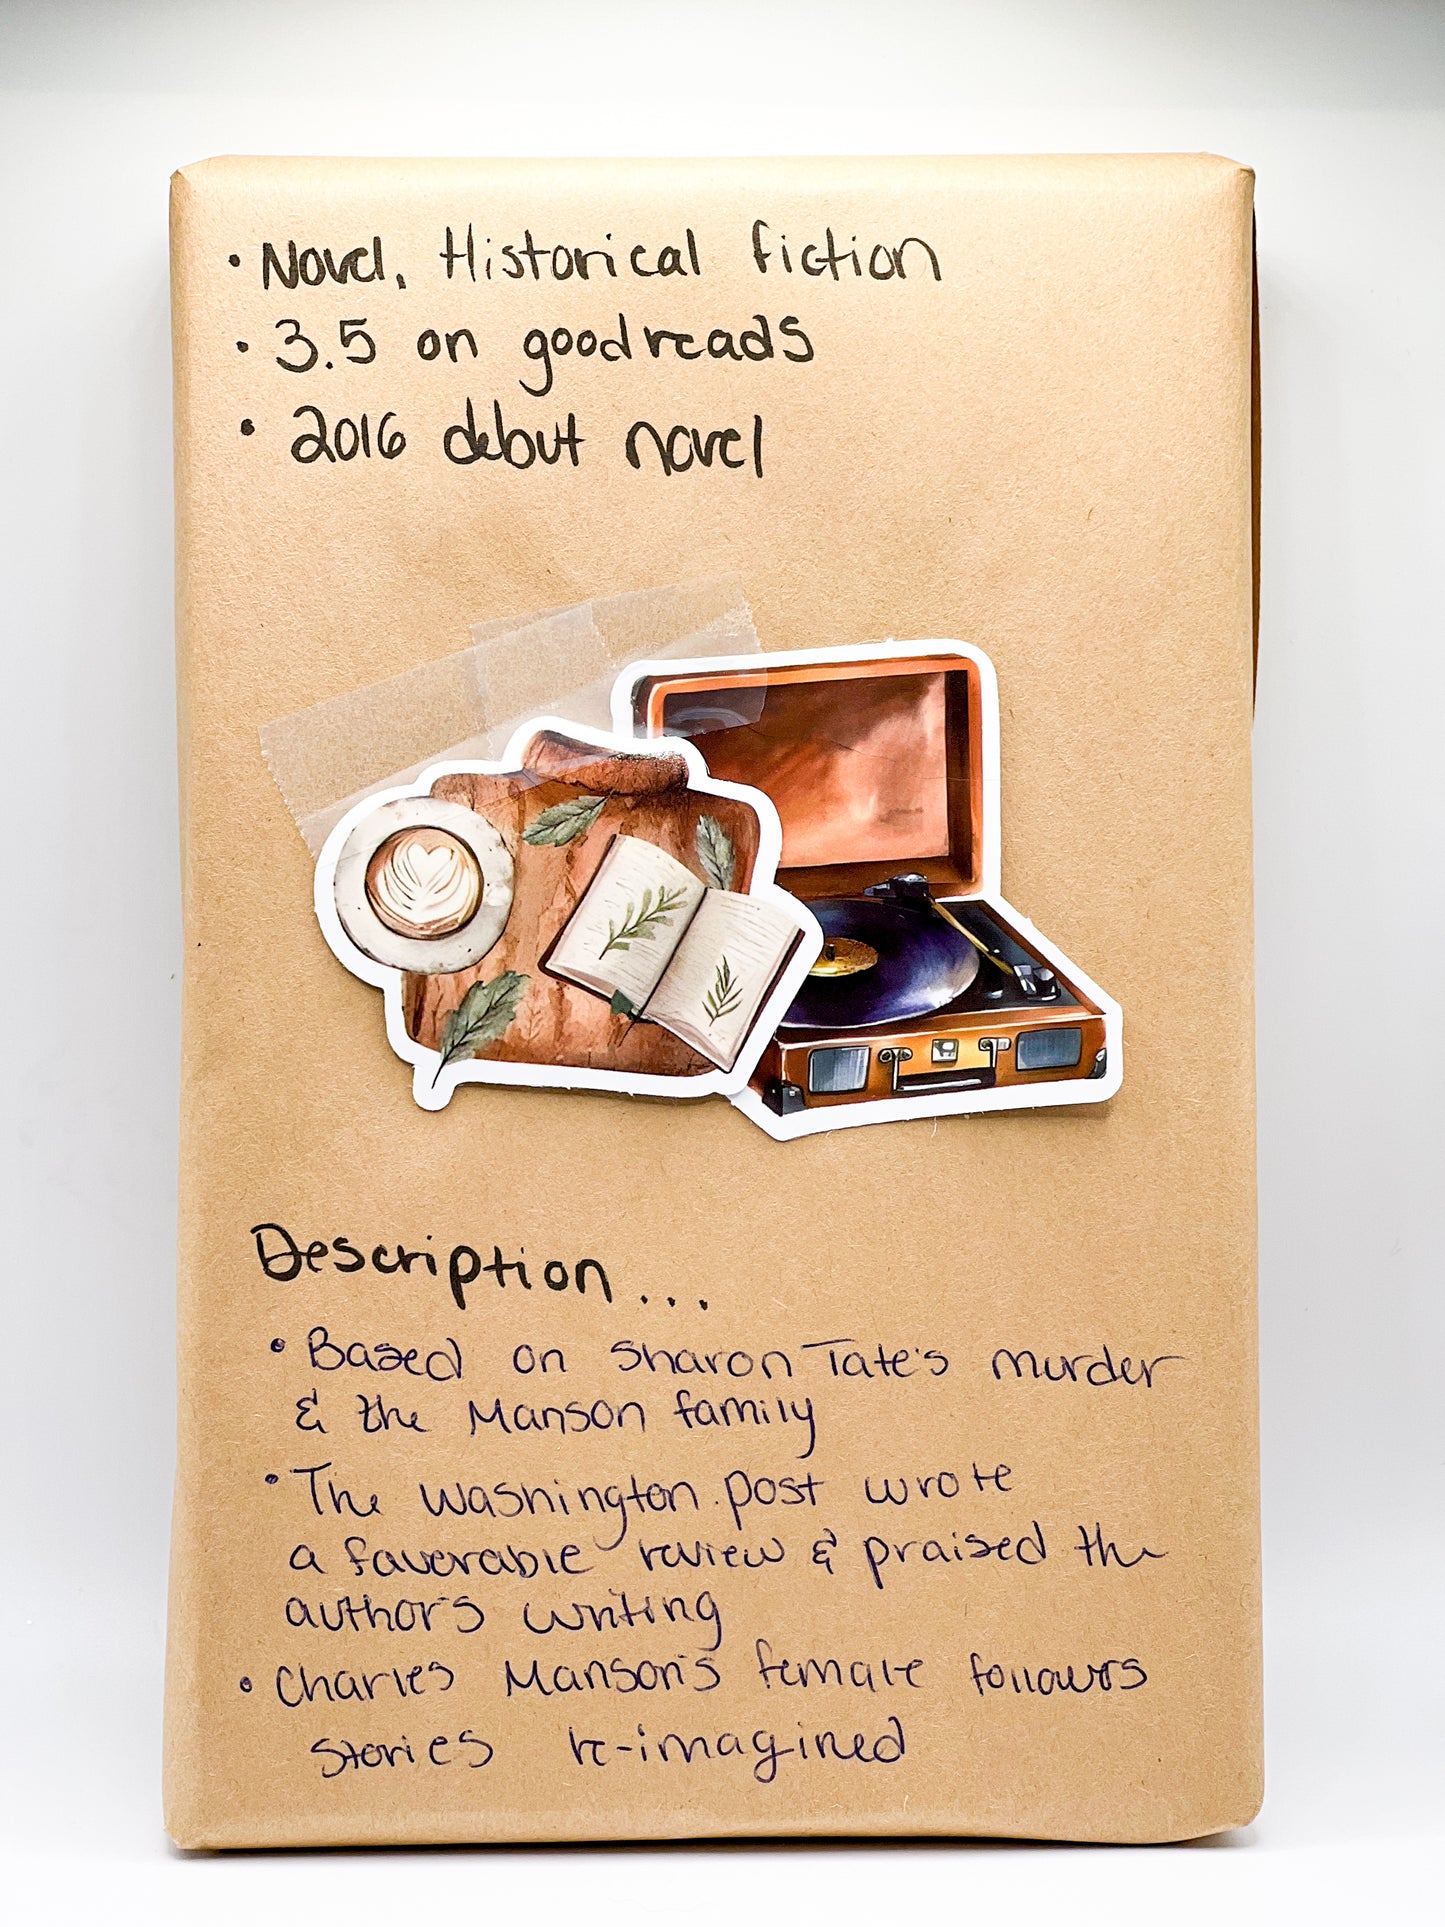 • Novel, Historical fiction
• 3.5 on goodreads
• 2016 debut novel
Description...
• Based on Sharon Tate's murder
& the Manson family
• The Washington post wrote
a favorable review & praised the
author's writing
• Charles Manson's female followers
stories re-imagined